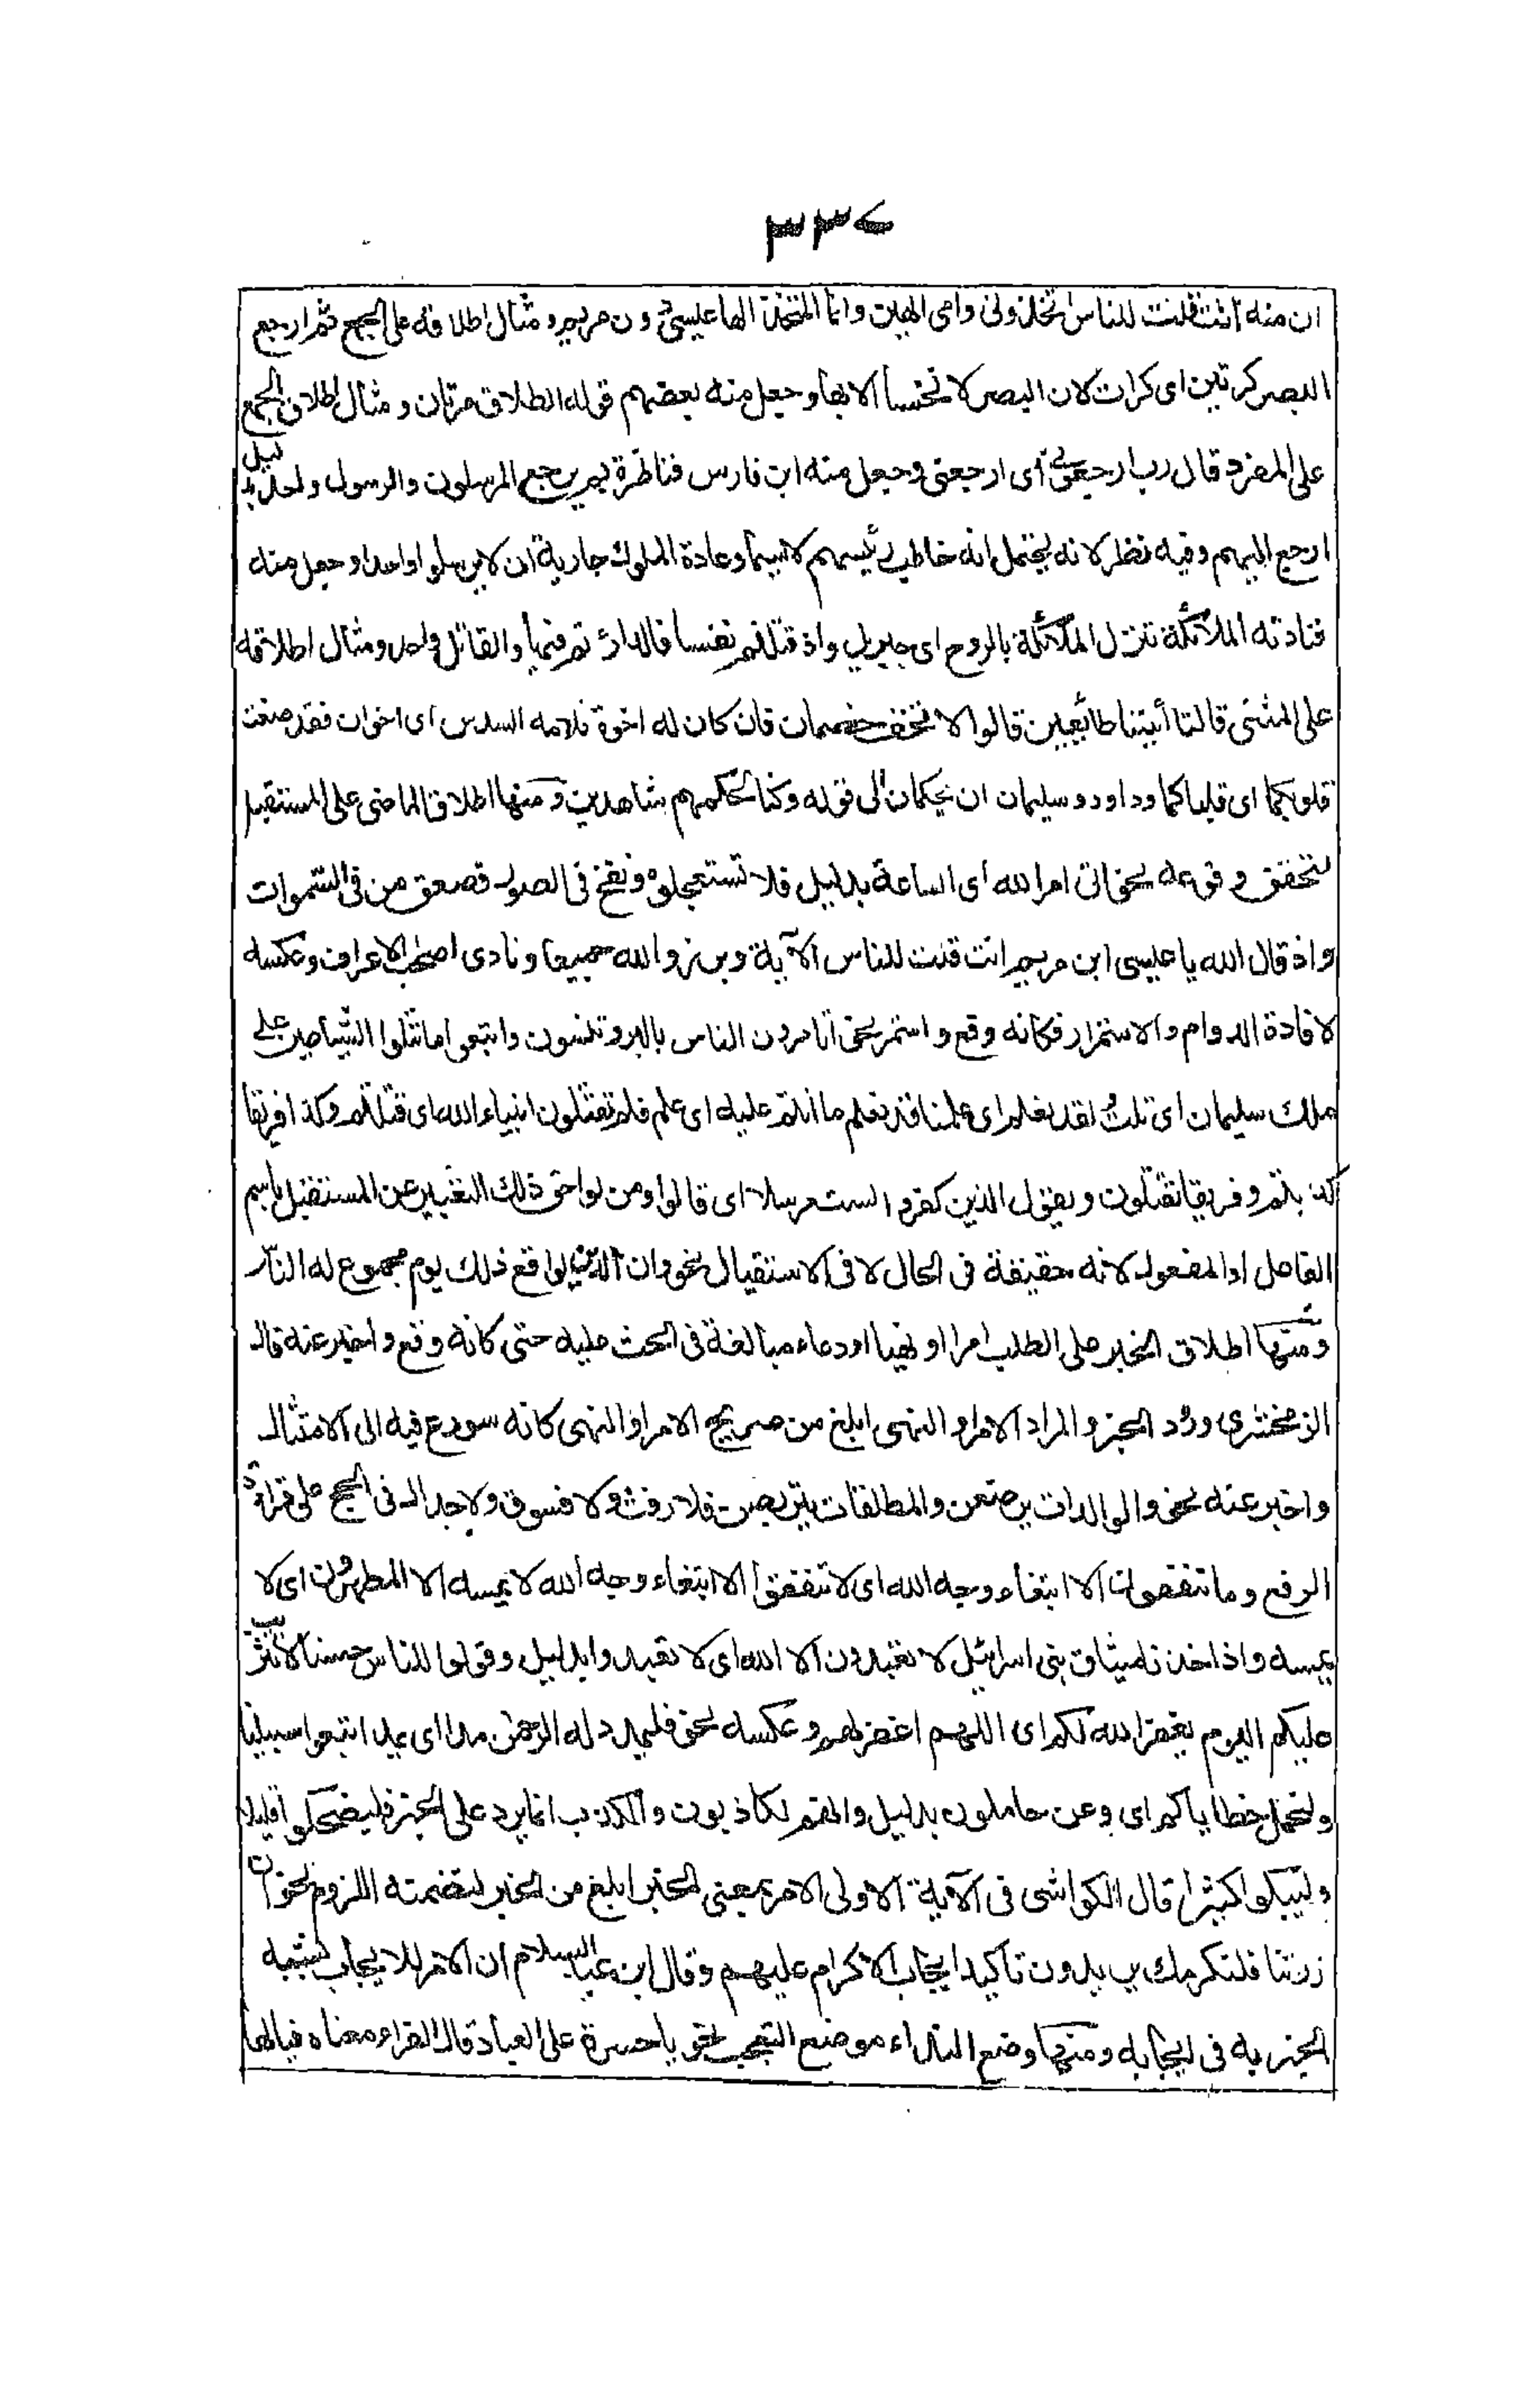 ٣٣٤
ان منه أانت قلت للناس اتخذونى وامى الهين وانما المتخذ الها عيسى دون مريم ومثال اطلاقه على الجمع ثم ارجع
البصر كرتين اى كرات لان البصر لا تخسأ الا بها وجعل منه بعضهم قوله الطلاق مرتان ومثال اطلاق الجمع
على المفرد قال رب ارجعون اى ارجعنى وجعل منه ابن فارس فناظرة بم يرجع المرسلون والرسول واحد بدليل
ارجع اليهم وفيه نظر لانه يحتمل انه خاطب رئيسهم لا سيما وعادة الملوك جارية ان لا يرسلوا واحدا وجعل منه
فنادته الملائكة تنزل الملائكة بالروح اى جبريل واذ قتلتم نفسا فادارئتم فيها والقاتل واحد ومثال اطلاقه
على المثنى قالتا أتينا طائعين قالوا لا تخف خصمان فان كان له اخوة فلامه السدس اى اخوان فقد صغت
قلوبكما اى قلباكما وداود وسليمان ان يحكمان الى قوله وكنا لحكمهم شاهدين ومنها اطلاق الماضى على المستقبل
لتحقق وقوعه نحو اتى امر الله اى الساعة بدليل فلا تستعجلوه ونفخ فى الصور فصعق من فى السموات
واذ قال الله يا عيسى ابن مريم انت قلت للناس الآية وبرزوا لله جميعا ونادى اصحٰب الاعراف وعكسه
لافادة الدوام والاستمرار فكانه وقع واستمر نحو اتامرون الناس بالبر وتنسون واتبعوا ما تتلوا الشياطين على
ملك سليمان اى تلت ولقد نعلم اى علمنا قد نعلم ما انتم عليه اى علم فلم تقتلون انبياء الله اى قتلتم وكذا فريقا
كذبتم وفريقا تقتلون ويقول الذين كفروا لست مرسلا اى قالوا ومن لواحق ذلك التعبير عن المستقبل باسم
الفاعل او المفعول لانه حقيقة فى الحال لا فى الاستقبال نحو وان الدين لواقع ذلك يوم مجموع له الناس
ومنها اطلاق الخبر على الطلب امرا او نهيا او دعاء مبالغة فى الحث عليه حتى كانه وقع واخبر عنه قال
الزمخشرى ورود الخبر والمراد الامر او النهى ابلغ من صريح الامر او النهى كانه سورع فيه الى الامتثال
واخبر عنه نحو والوالدات يرضعن والمطلقات يتربصن فلا رفث ولا فسوق ولا جدال فى الحج على قراءة
الرفع وما تنفقون الا ابتغاء وجه الله اى لا تنفقوا الا ابتغاء وجه الله لا يمسه الا المطهرون اى لا
يمسه واذ اخذنا ميثاق بنى اسرائيل لا تعبدون الا الله اى لا تعبدوا بدليل وقولوا للناس حسنا لا تثريب
عليكم اليوم يغفر الله لكم اى اللهم اغفر لهم وعكسه نحو فليمدد له الرحمن مدا اى يمد اتبعوا سبيلنا
ولنحمل خطاياكم اى ونحن حاملون بدليل وانهم لكاذبون والكذب انما يرد على الخبر فليضحكوا قليلا
وليبكوا كثيرا قال الكواشى فى الآية الاولى الامر بمعنى الخبر ابلغ من الخبر لتضمنه اللزوم نحو ان
زرتنا فلنكرمك يريدون تأكيد ايجاب الاكرام عليهم وقال ابن عبد السلام ان الامر للايجاب يشبه
الخبر به فى ايجابه ومنها وضع النداء موضع التعجب نحو يا حسرة على العباد قال الفراء معناه فيالها